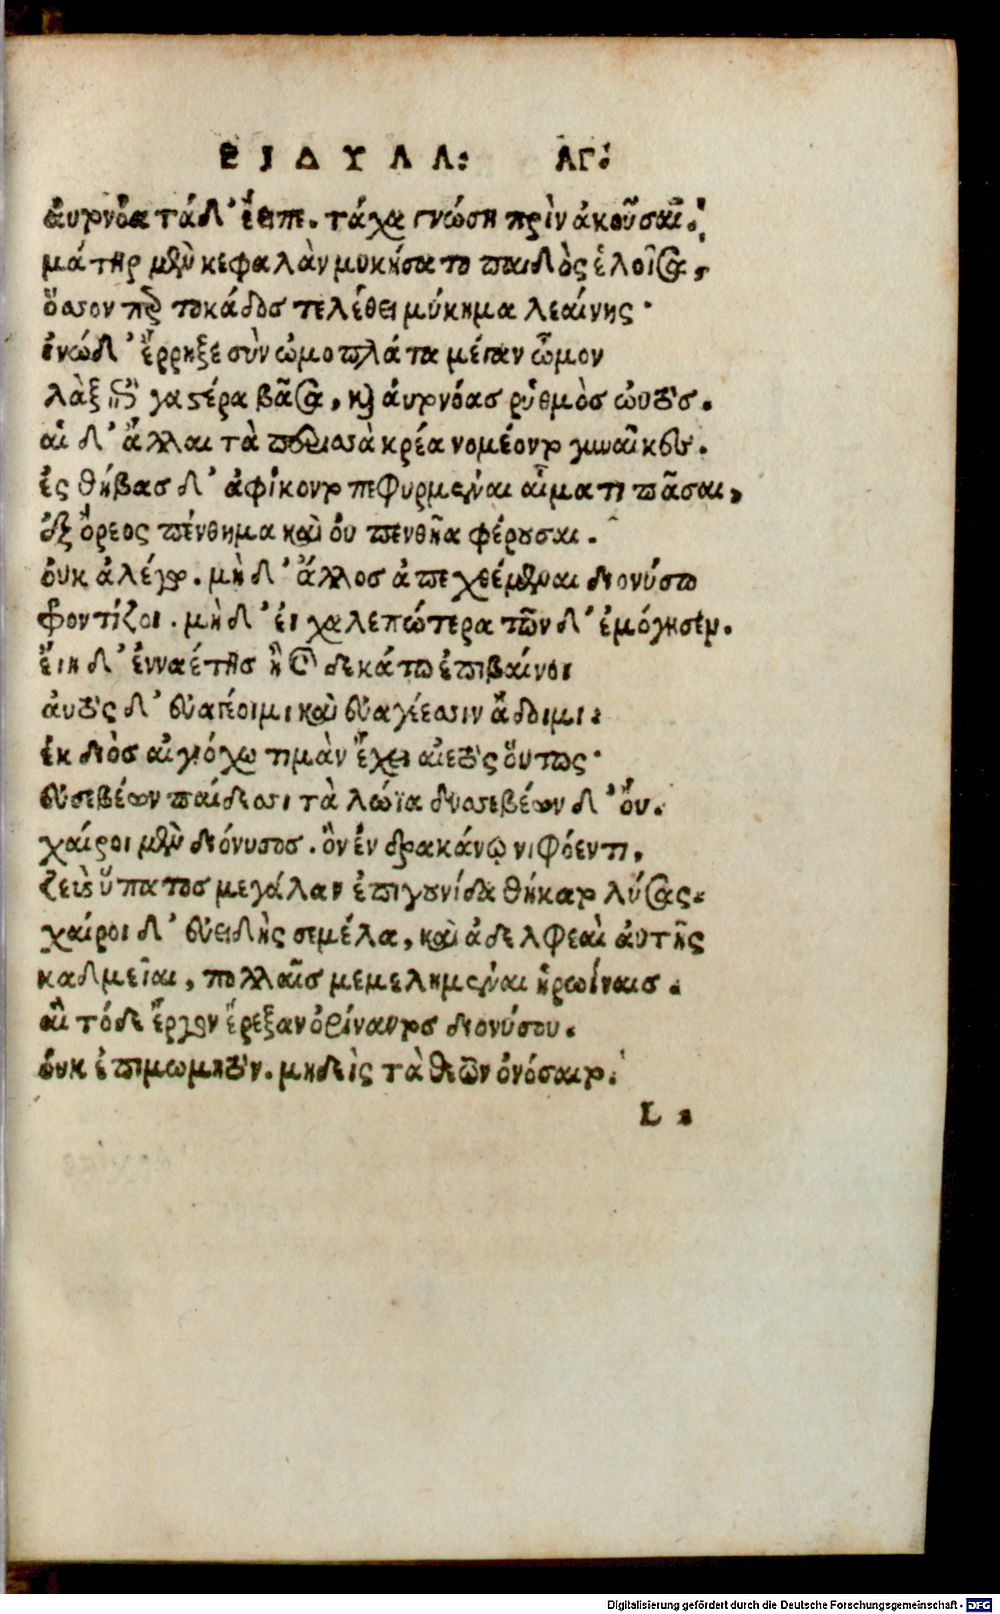 ΕΙΔΥΛΛ: ΛΓ.
ἀυτονόα τάδ' ἔειπε. τάχα γνώσῃ πρὶν ἀκοῦσαι.
μάτηρ μὲν κεφαλὰν μυκήσατο παιδὸς ἑλοῖσα,
ὅσσον περ τοκάδος τελέθει μύκημα λεαίνης·
ἰνώδ' ἔρρηξε σὺν ὠμοπλάτα μέγαν ὦμον
λὰξ ἐπὶ γαστέρα βᾶσα, καὶ ἀυτονόας ῥυθμὸς ὡυτός.
αἱ δ' ἄλλαι τὰ περισσὰ κρέα νομέοντο γυναῖκες.
ἐς θήβας δ' ἀφίκοντο πεφυρμέναι αἵματι πᾶσαι,
ἐξ ὄρεος πένθημα καὶ ὀυ πενθῆα φέρουσαι.
ὀυκ ἀλέγω. μὴ δ' ἄλλος ἀπεχθέμεναι διονύσω
φροντίζοι. μὴ δ' ἐι χαλεπώτερα τῶν δ' ἐμόγησεν.
ἔιη δ' ἐνναέτης ἢ καὶ δεκάτω ἐπιβαίνοι
ἀυτὸς δ' ἐυαγέοιμι καὶ ἐυαγέεσσιν ἅδοιμι.
ἐκ διὸς αἰγιόχω τιμὰν ἔχει αἰετὸς ὅυτως·
ἐυσεβέων παίδεσσι τὰ λώϊα δυσσεβέων δ' ὄυ.
χαίροι μὲν διόνυσος. ὃν ἐν δρακάνῳ νιφόεντι,
ζεὺς ὕπατος μεγάλαν ἐπιγουνίδα θήκατο λύσας.
χαίροι δ' ἐυειδὴς σεμέλα, καὶ ἀδελφεαὶ ἀυτῆς
καδμεῖαι, πολλαῖς μεμελημέναι ἡρωίναις.
αἳ τόδε ἔργον ἔρεξαν ὀρίναντος διονύσου.
ὀυκ ἐπιμωμητόν. μηδεὶς τὰ θεῶν ὀνόσαιτο.
L
Digitalisierung gefördert durch die Deutsche Forschungsgemeinschaft - DFG